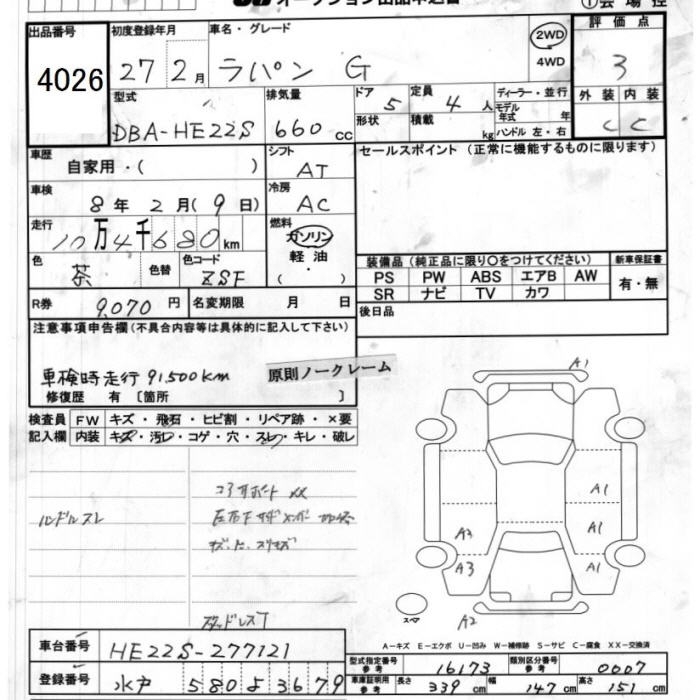 オークション出品申込書
①会場控
出品番号
4026
初度登録年月
27 2月
車名・グレード
ラパン G
2WD
4WD
評価点
3
外装 内装
C C
型式
DBA-HE22S
排気量
660 cc
ドア
形状 5
定員 4 人
積載 kg
ディーラー・並行
モデル
年式 年
ハンドル 左・右
車歴
自家用・( )
シフト
AT
セールスポイント (正常に機能するものに限ります)
車検
8年 2月(9日)
冷房
AC
走行
10万4千680km
燃料
ガソリン
軽油
( ・ )
色
茶
色替
色コード
ZSF
装備品 (純正品に限り○をつけてください)
PS PW ABS エアB AW
SR ナビ TV カワ
新車保証書
有・無
R券 9,070円
名変期限 月 日
後日品
注意事項申告欄(不具合内容等は具体的に記入して下さい)
車検時走行 91,500km
原則ノークレーム
修復歴 有 [箇所 ]
検査員
記入欄
FW キズ・飛石・ヒビ割・リペア跡・×要
内装 キズ・汚レ・コゲ・穴・スレ・キレ・破レ
ハンドルスレ
コアサポート XX
スタッドレスT
A1
A1
A2 A1
A3 A1
スペア
A2
A-キズ E-エクボ U-凹み W-補修跡 S-サビ C-腐食 XX-交換済
車台番号 HE22S-277121
登録番号 水戸 580 よ 3679
型式指定番号
参考 16173
類別区分番号
参考 0007
車庫証明用
参考
長さ 339 cm 幅 147 cm 高さ 151 cm